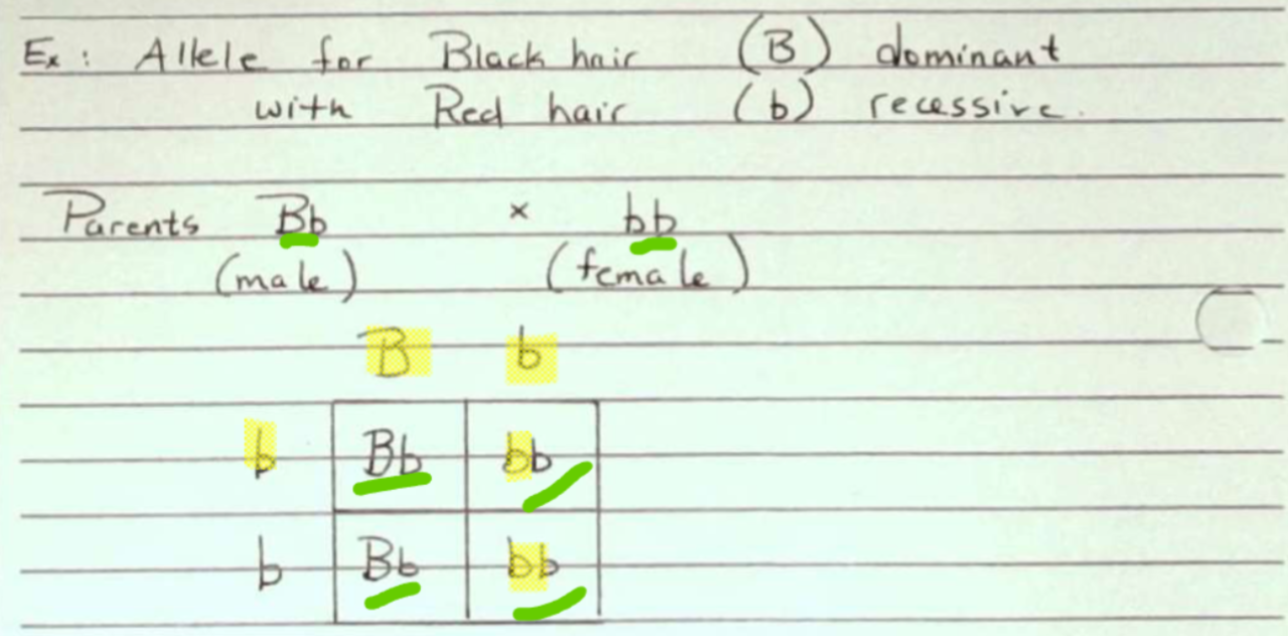 Ex: Allele for Black hair (B) dominant
with Red hair (b) recessive.
Parents Bb x bb
(male) (female)
B b
b Bb bb
b Bb bb